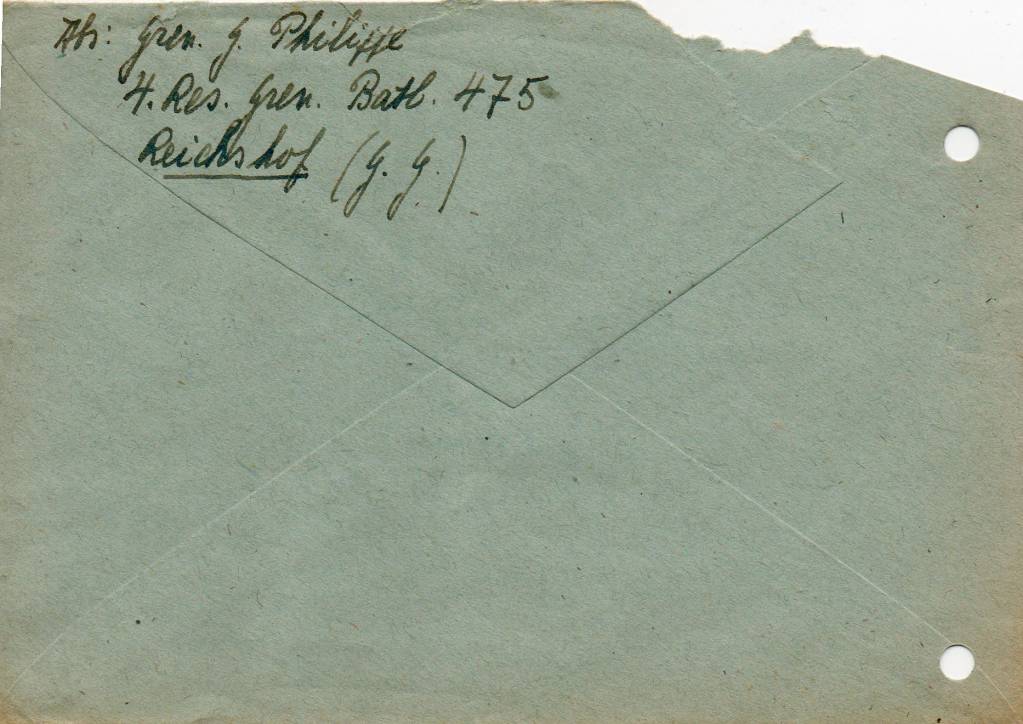 Abs: Gren. G. Philippe
4. Res. Gren. Batl. 475
Reichshof (G. G.)